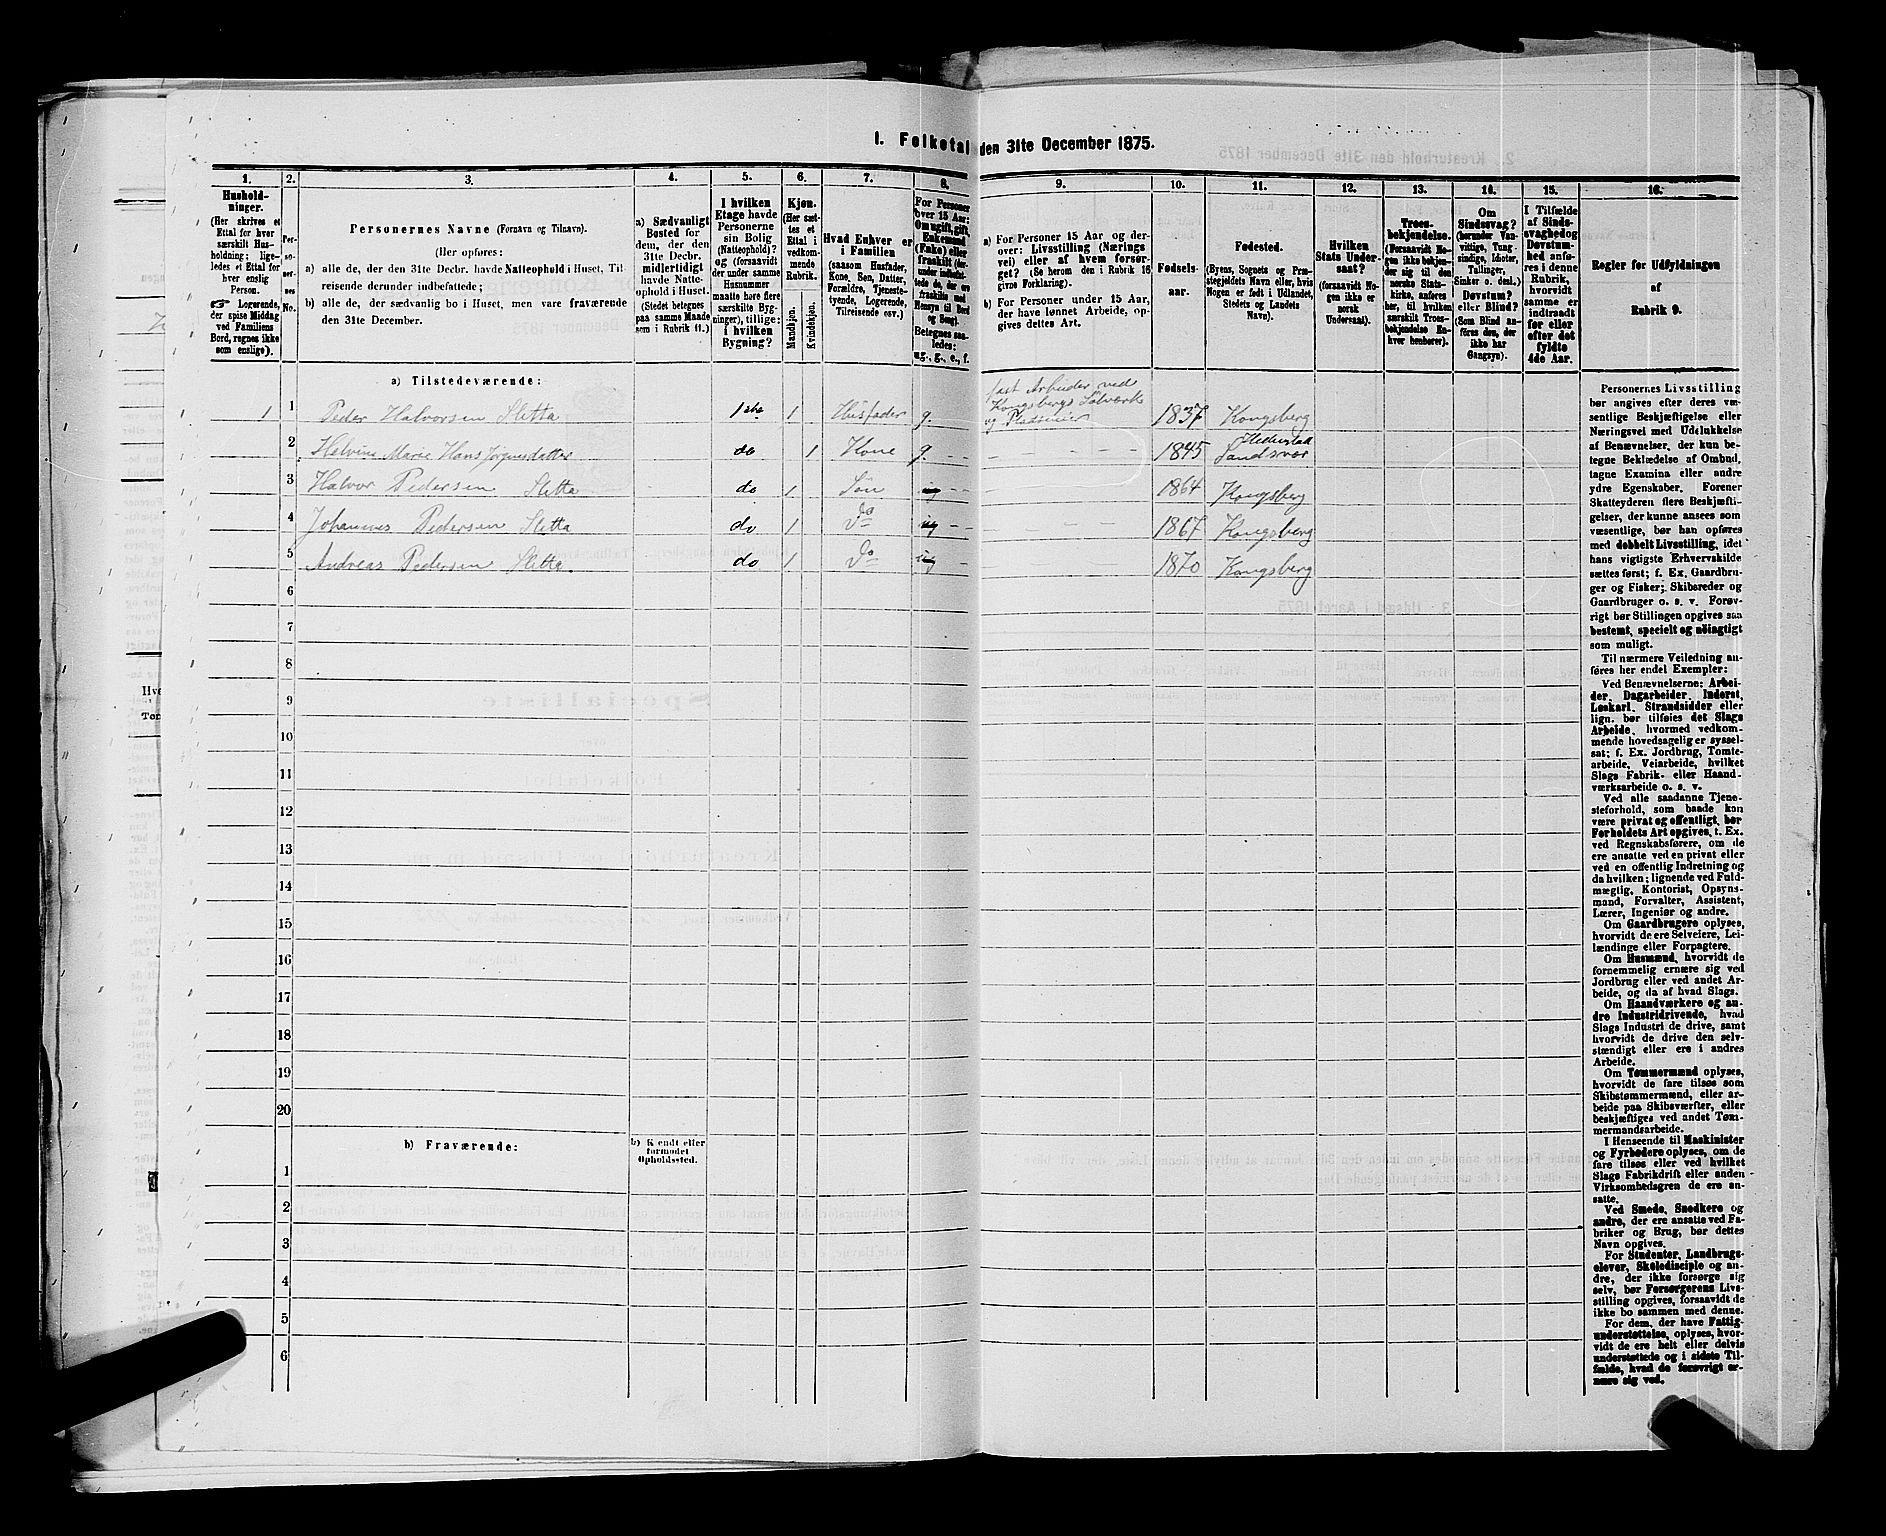 1. Folketal den 31te December 1875.
1.
Hushold-
ninger.
(Her skrives et
Ettal for hver
særskilt Hus-
holdning; lige-
ledes et Ettal for
hver enslig
Person.
☞ Logerende,
der spise Middag
ved Familiens
Bord, regnes ikke
som enslige).
2.
Per-
so-
ner-
nes
No.
3.
Personernes Navne (Fornavn og Tilnavn).
(Her opføres:
a) alle de, der den 31te Decbr. havde Natteophold i Huset, Til-
reisende derunder indbefattede;
b) alle de, der sædvanlig bo i Huset, men vare fraværende
den 31te December.
4.
a) Sædvanligt
Bosted for
dem, der den
31te Decbr.
midlertidigt
havde Natte-
ophold i Huset.
(Stedet betegnes
paa samme Maade
som i Rubrik 11.)
5.
I hvilken
Etage havde
Personerne
sin Bolig
(Natteophold)?
og (forsaavidt
der under samme
Husnummer
maatte høre flere
særskilte Byg-
ninger), tillige:
i hvilken
Bygning?
6.
Kjøn.
(Her sæt-
tes et
Ettal i
vedkom-
mende
Rubrik.
Mandkjøn.
Kvindekjøn.
7.
Hvad Enhver er
i Familien
(saasom Husfader,
Kone, Søn, Datter,
Forældre, Tjeneste-
tyende, Logerende,
Tilreisende osv.)
8.
For Personer
over 15 Aar:
Om ugift, gift,
Enkemand
(Enke) eller
fraskilt
Betegnes saa-
ledes:
ug., g., e., f.
9.
a) For Personer 15 Aar og der-
over: Livsstilling (Nærings
vei) eller af hvem forsør-
get? (Se herom den i Rubrik 16
givne Forklaring).
b) For Personer under 15 Aar,
der have lønnet Arbeide, op-
gives dettes Art.
10.
Fødsels-
aar.
11.
Fødested.
(Byens, Sognets og Præ-
stegjeldets Navn eller, hvis
Nogen er født i Udlandet,
Stedets og Landets
Navn).
12.
Hvilken
Stats Under-
saat?
(forsaavidt No-
gen ikke er
norsk
Undersaat).
13.
Troes-
bekjendelse.
(Forsaavidt No-
gen ikke bekjen-
der sig til den
norske Stats-
kirke, anføres
her, til hvilken
særskilt Troes-
bekjendelse En-
hver henhører).
14.
Om
Sindssvag?
(herunder Van-
vittige, Tung-
sindige, Idioter,
Tullinger,
Sinker o. desl.)
Døvstum?
eller Blind?
(Som Blind an-
føres den, der
ikke har
Gangsyn).
15.
I Tilfælde
af Sinds-
svaghed og
Døvstum-
hed anfø-
res i denne
Rubrik,
hvorvidt
samme er
indtraadt
før eller
efter det
fyldte
4de Aar.
16.
Regler for Udfyldningen
af
Rubrik 9.
a) Tilstedeværende:
fast Arbeider ved
Kongsbergs Sølvværk
1 1 Peder Halvorsen Sletta 1 Husfader g. 1837 Kongsberg
2 Helvine Marie Hans Jørgensdatter do 1 Kone g. 1845 Hedenstad
Sandsvær
3 Halvor Pedersen Sletta do 1 Søn ug 1864 Kongsberg
4 Johannes Pedersen Sletta do 1 Do ug 1867 Kongsberg
5 Andreas Pedersen Sletta. do 1 Do ug 1870 Kongsberg
6
7
8
9
10
11
12
13
14
15
16
17
18
19
20
b) Fraværende:
b) Kjendt eller
formodet
Opholdssted.
1
2
3
4
5
6
Personernes Livsstilling
bør angives efter deres væ-
sentlige Beskjæftigelse eller
Næringsvei med Udelukkelse
af Benævnelser, der kun be-
tegne Beklædelse af Ombud,
tagne Examina eller andre
ydre Egenskaber. Forener
Skatteyderen flere Beskjæfti-
gelser, der kunne ansees som
væsentlige, bør han opføres
med dobbelt Livsstilling, idet
hans vigtigste Erhvervskilde
sættes først; f. Ex. Gaardbru-
ger og Fisker; Skibsreder og
Gaardbruger o. s. v. Forøv-
rigt bør Stillingen opgives saa
bestemt, specielt og nøiagtigt
som muligt.
Til nærmere Veiledning an-
føres her endel Exempler:
Ved Benævnelserne: Arbei-
der, Dagarbeider, Inderst,
Løskarl, Strandsidder eller
lign. bør tilføies det Slags
Arbeide, hvormed vedkom-
mende hovedsagelig er syssel-
sat; f. Ex. Jordbrug, Tomte-
arbeide, Veiarbeide, hvilket
Slags Fabrik- eller Haand-
værksarbeide o. s. v.
Ved alle saadanne Tjene-
steforhold, som baade kan
være privat og offentligt, bør
Forholdets Art opgives, t. Ex.
ved Regnskabsførere, om de
ere ansatte ved en privat eller
ved en offentlig Indretning og
da hvilken; lignende ved Fuld-
mægtig, Kontorist, Opsyns-
mand, Forvalter, Assistent,
Lærer, Ingeniør og andre.
Om Gaardbrugere oplyses,
hvorvidt de ere Selveiere, Lei-
lændinge eller Forpagtere.
Om Husmænd, hvorvidt de
fornemmelig ernære sig ved
Jordbrug eller ved andet Ar-
beide, og da af hvad Slags.
Om Haandværkere og an-
dre Industridrivende, hvad
Slags Industri de drive, samt
hvorvidt de drive den selv-
stændigt eller ere i andres
Arbeide.
Om Tømmermænd oplyses,
hvorvidt de fare tilsøs som
Skibstømmermænd, eller ar-
beide paa Skibsværfter, eller
beskjæftiges ved andet Tøm-
mermandsarbeide.
I Henseende til Maskinister
og Fyrbødere oplyses, om de
fare tilsøs eller ved hvilket
Slags Fabrikdrift eller anden
Virksomhedsgren de ere an-
satte.
Ved Smede, Snedkere og
andre, der ere ansatte ved Fa-
briker og Brug, bør dettes
Navn opgives.
For Studenter, Landbrugs-
elever, Skoledisciple og an-
dre, der ikke forsørge sig
selv, bør Forsørgerens Livs-
stilling opgives, forsaavidt de
ikke bo sammen med denne.
For dem, der have Fattig-
understøttelse, oplyses, hvor-
vidt de ere helt eller delvis
understøttede og i sidste Til-
fælde, hvad de forøvrigt er-
nære sig ved.